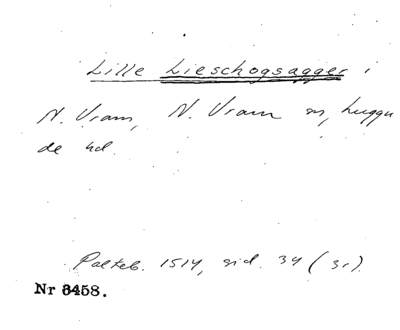 Lille Lieschogsagger i
N. Vram, N. Vram sn, Luggu
de hd.
Palteb. 1514, sid. 34 (31).
Nr 6458.